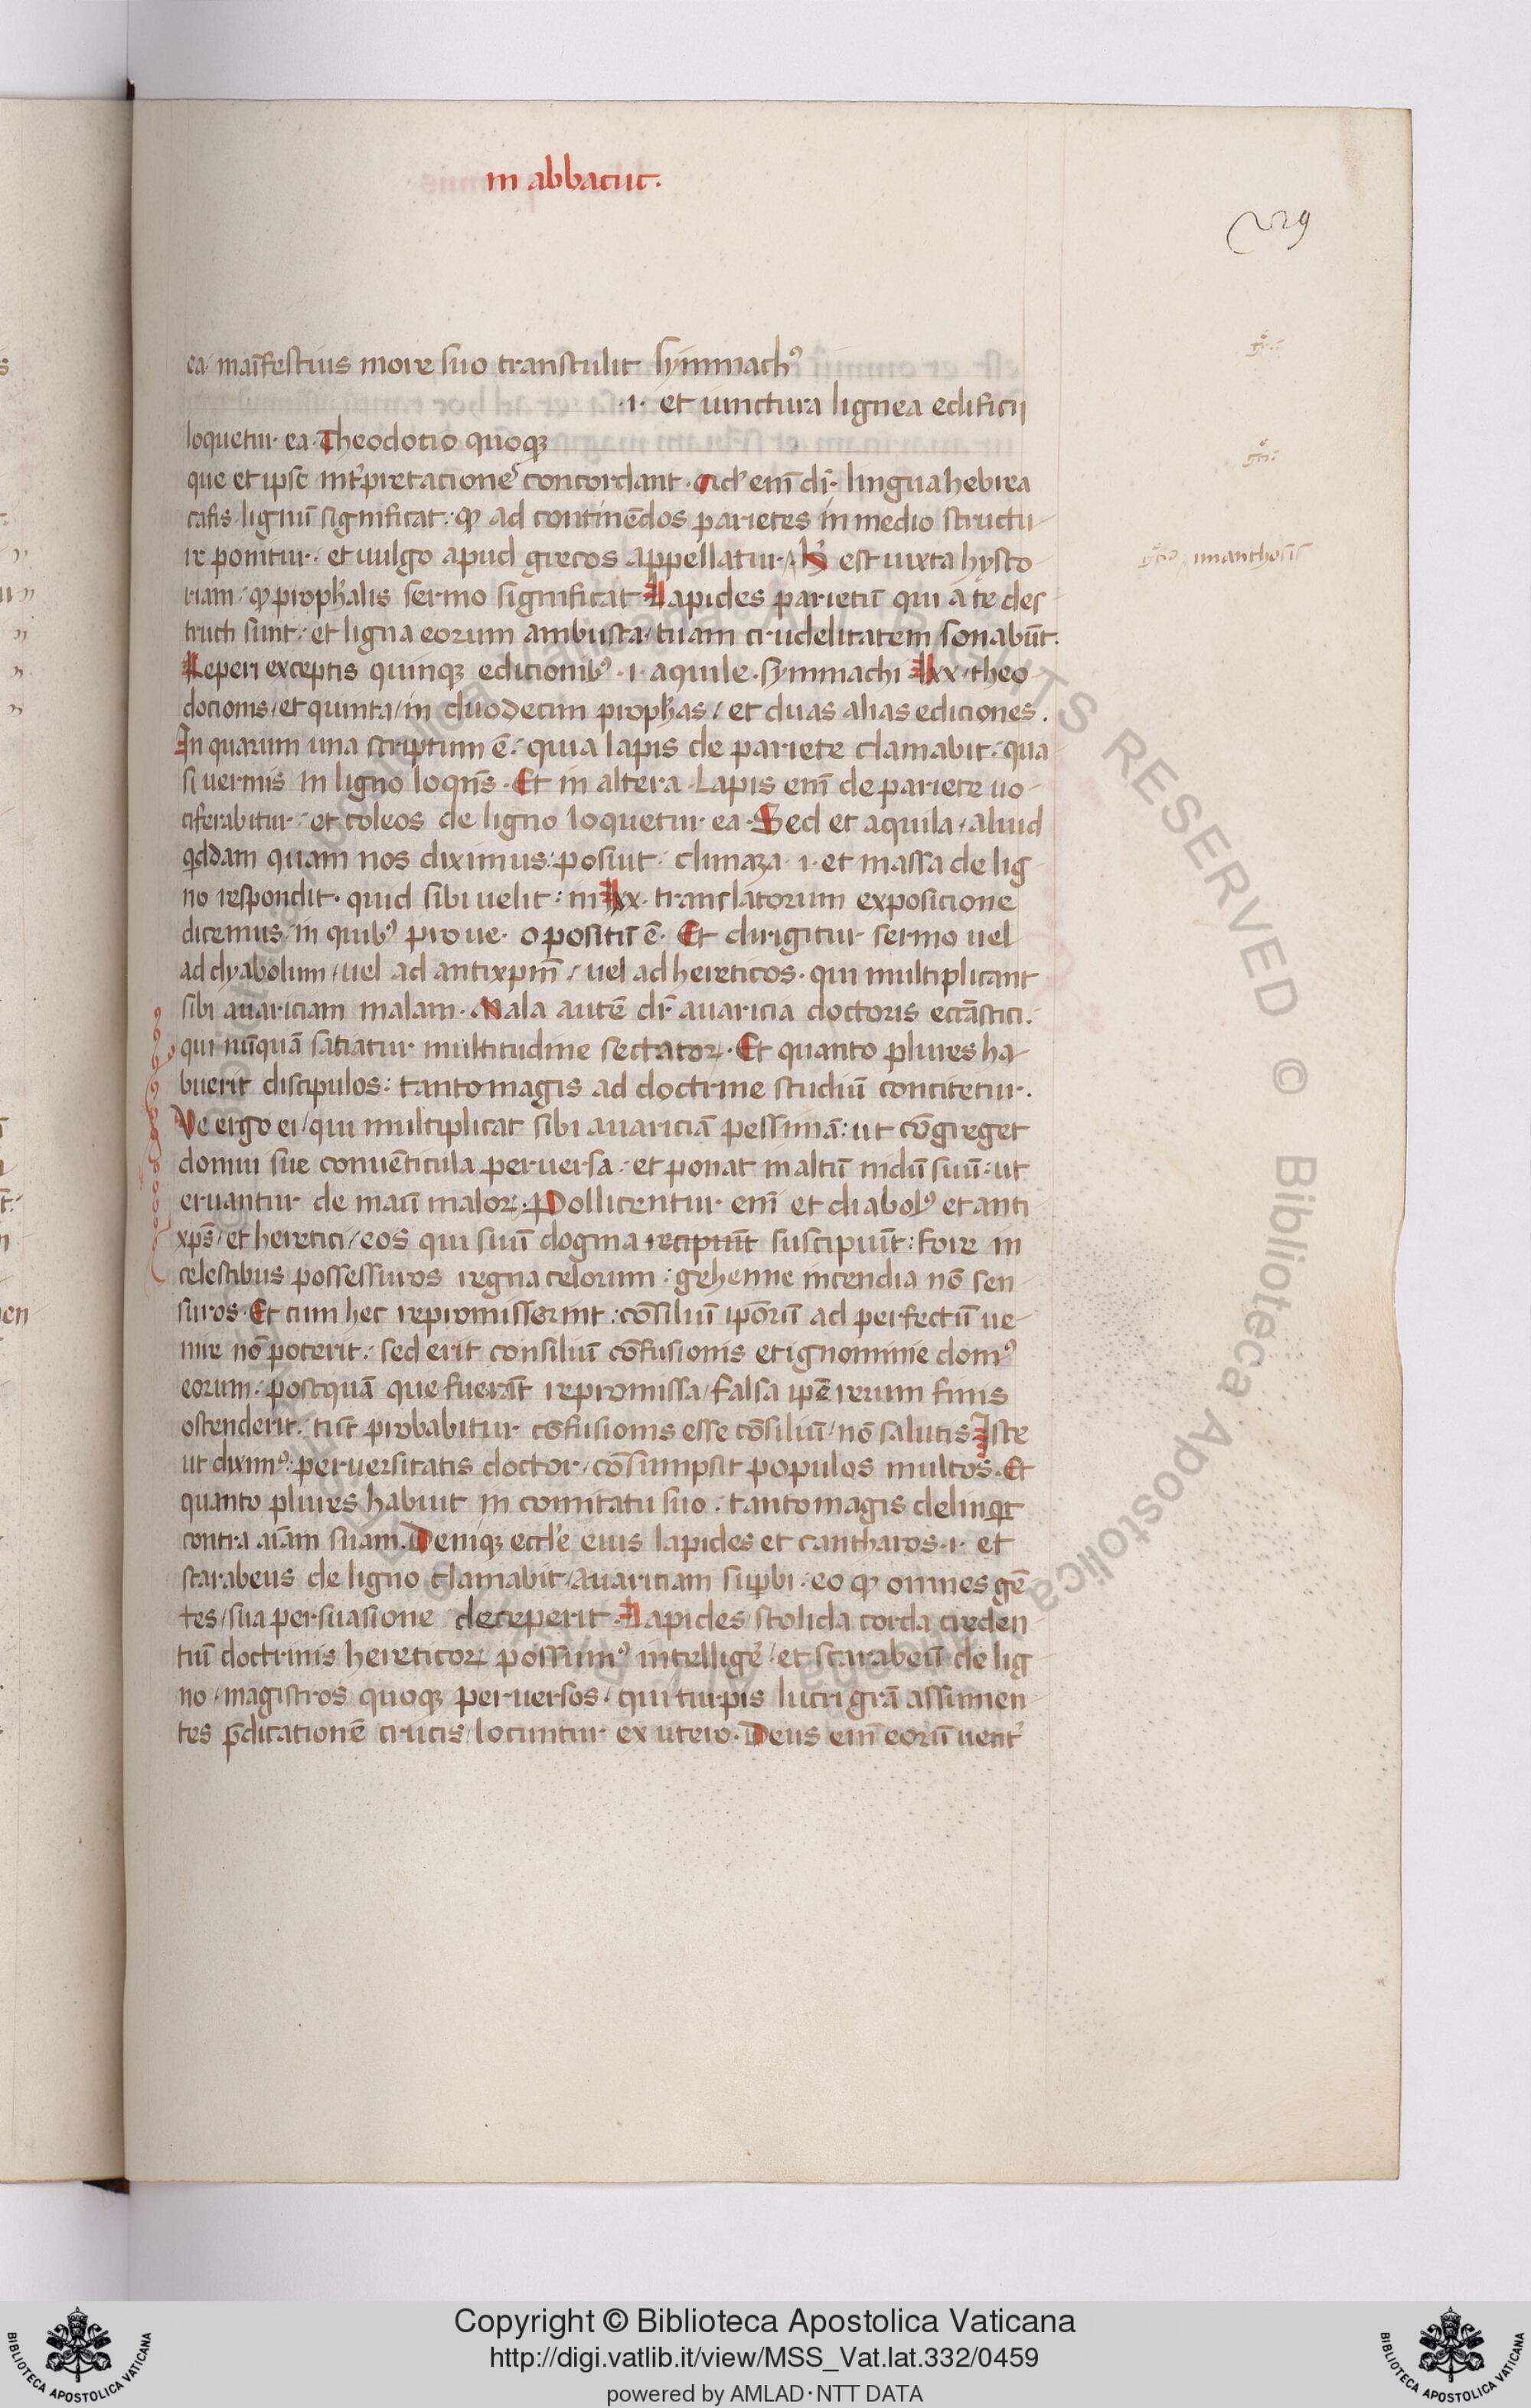 in abbacuc.
229
ea manīfestius more suo transtulit symmachꝰ
.i. et iunctura lignea edificij
loquetur ea. Theodotio quoqꝫ
que et ipse intˀpretationeˢ concordant. Qd' enī dr̄ lingua hebrea
cafis lignū significat: qꝙ ad continēdos parietes in medio structu-
re ponitur. et uulgo apud grecos appellatur. h' est iuxta hysto-
riam qꝙ prophalis sermo significat Lapides parietū qui a te des-
tructi sunt: et ligna eorum ambusta tuam crudelitatem sonabūt.
Reperi exceptis quinqꝫ editionibꝰ .i. aquile. symmachi lxx. theo-
docionis et quinta in duodecim prophas et duas alias ediciones.
In quarum una scriptum ē: quia lapis de pariete clamabit: qua-
si uermis in ligno loqns̄. Et in altera. Lapis enī de pariete uo-
ciferabitur: et coleos de ligno loquetur ea. Sed et aquila aliud
qddam quam nos diximus: posuit. climaza. i. et massa de lig-
no respondit. quid sibi uelit: in lxx. translatorum exposicione
dicemus in quibꝰ pro ue. o positū ē. Et dirigitur sermo uel
ad dyabolum uel ad antixpm̄ uel ad hereticos. qui multiplicant
sibi auariciam malam. Mala autē dr̄ auaricia doctoris ecc̄astici.
qui nūquā satiatur multitudine sectatoꝝ. Et quanto plures ha-
buerit discipulos: tanto magis ad doctrine studiū concitetur.
Ve ergo ei qui multiplicat sibi auariciā pessimā: ut cōgreget
domui sue conuēticula peruersa: et ponat in altū nidū suū: ut
eruantur de manū maloꝝ. Pollicentur enī et diabolꝰ et anti
xps̄ et heretici eos qui suū dogma recipiūt suscipiūt: fore in
celestibus possessuros regna celorum: gehenne incendia nō sen-
suros. Et cum hec repromisserint: cōsiliū ipōrū ad perfectū ue-
nire nō poterit: sed erit consiliū cōfusionis et ignominie domꝰ
eorum: postquā que fuerāt repromissa falsa ipē rerum finis
ostenderit: tūc probabitur cōfusionis esse cōsiliū nō salutis Iste
ut diximꝰ: peruersitatis doctor cōsumpsit populos multos. Et
quanto plures habuit in comitatu suo: tanto magis delinqt
contra aīam suam. Deniqꝫ eccl'e eius lapides et cantharos .i. et
scarabeus de ligno clamabit auariciam supbi. eo qꝙ omnes gē
tes sua persuasione deceperit. Lapides stolida corda creden-
tiū doctrinis hereticoꝝ possumꝰ intelligeˀ et scarabeū de lig-
no magistros quoqꝫ peruersos. qui turpis lucri grā assumen-
tes pdicationē crucis locuntur ex utero. Deus enī eorū uentˀ
gr̄:
gr̄:
gr̄: imanthosis
Copyright © Biblioteca Apostolica Vaticana
http://digi.vatlib.it/view/MSS_Vat.lat.332/0459
powered by AMLAD·NTT DATA
BIBLIOTECA APOSTOLICA VATICANA
BIBLIOTECA APOSTOLICA VATICANA